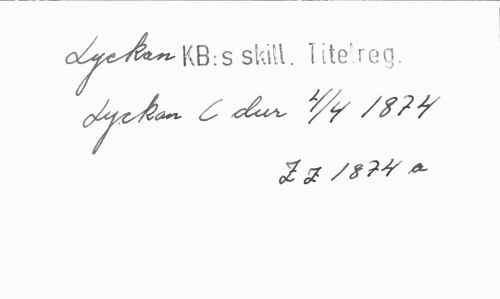 Lyckan KB:s skill. Titelreg.
Lyckan C dur 4/4 1874
Z Z 1874 a